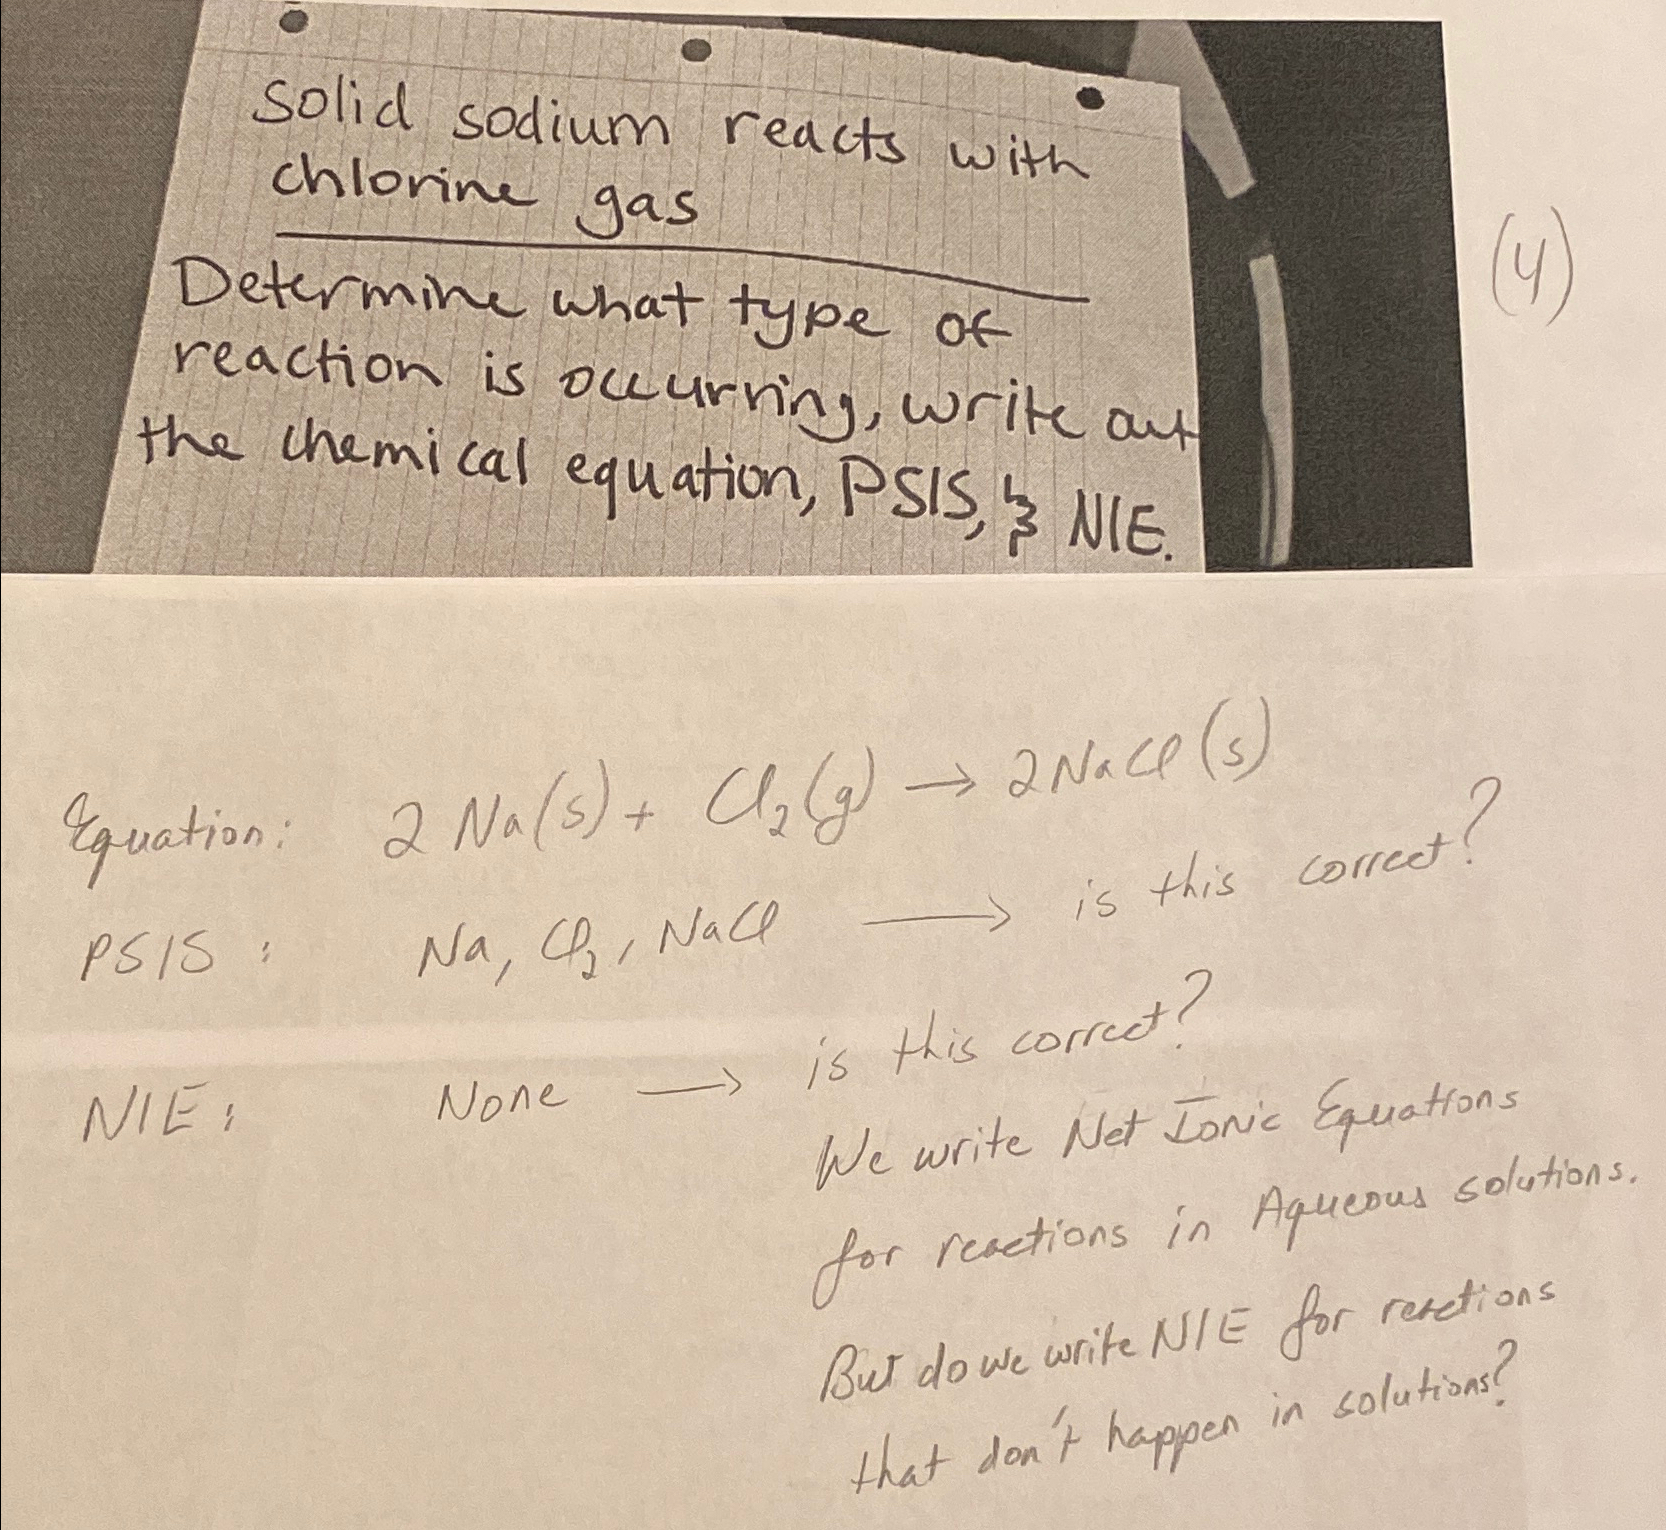 Solid sodium reacts with
chlorine gas
Determine what type of
reaction is occurring, write out
the chemical equation, PSIS, & NIE.
(4)
Equation: 2 Na(s) + Cl₂(g) → 2NaCl(s)
PSIS: Na, Cl₂, NaCl → is this correct?
NIE: None → is this correct?
We write Net Ionic Equations
for reactions in Aqueous solutions.
But do we write NIE for reactions
that don't happen in solutions?